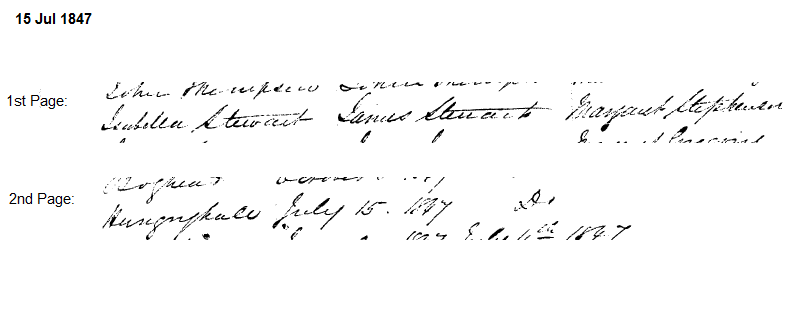 15 Jul 1847
1st Page:
John Thompson John
Isabella Stewart James Stewart Margaret Stephenson
2nd Page:
Hungryhall July 15. 1847 Do
1847 July 11th 1847